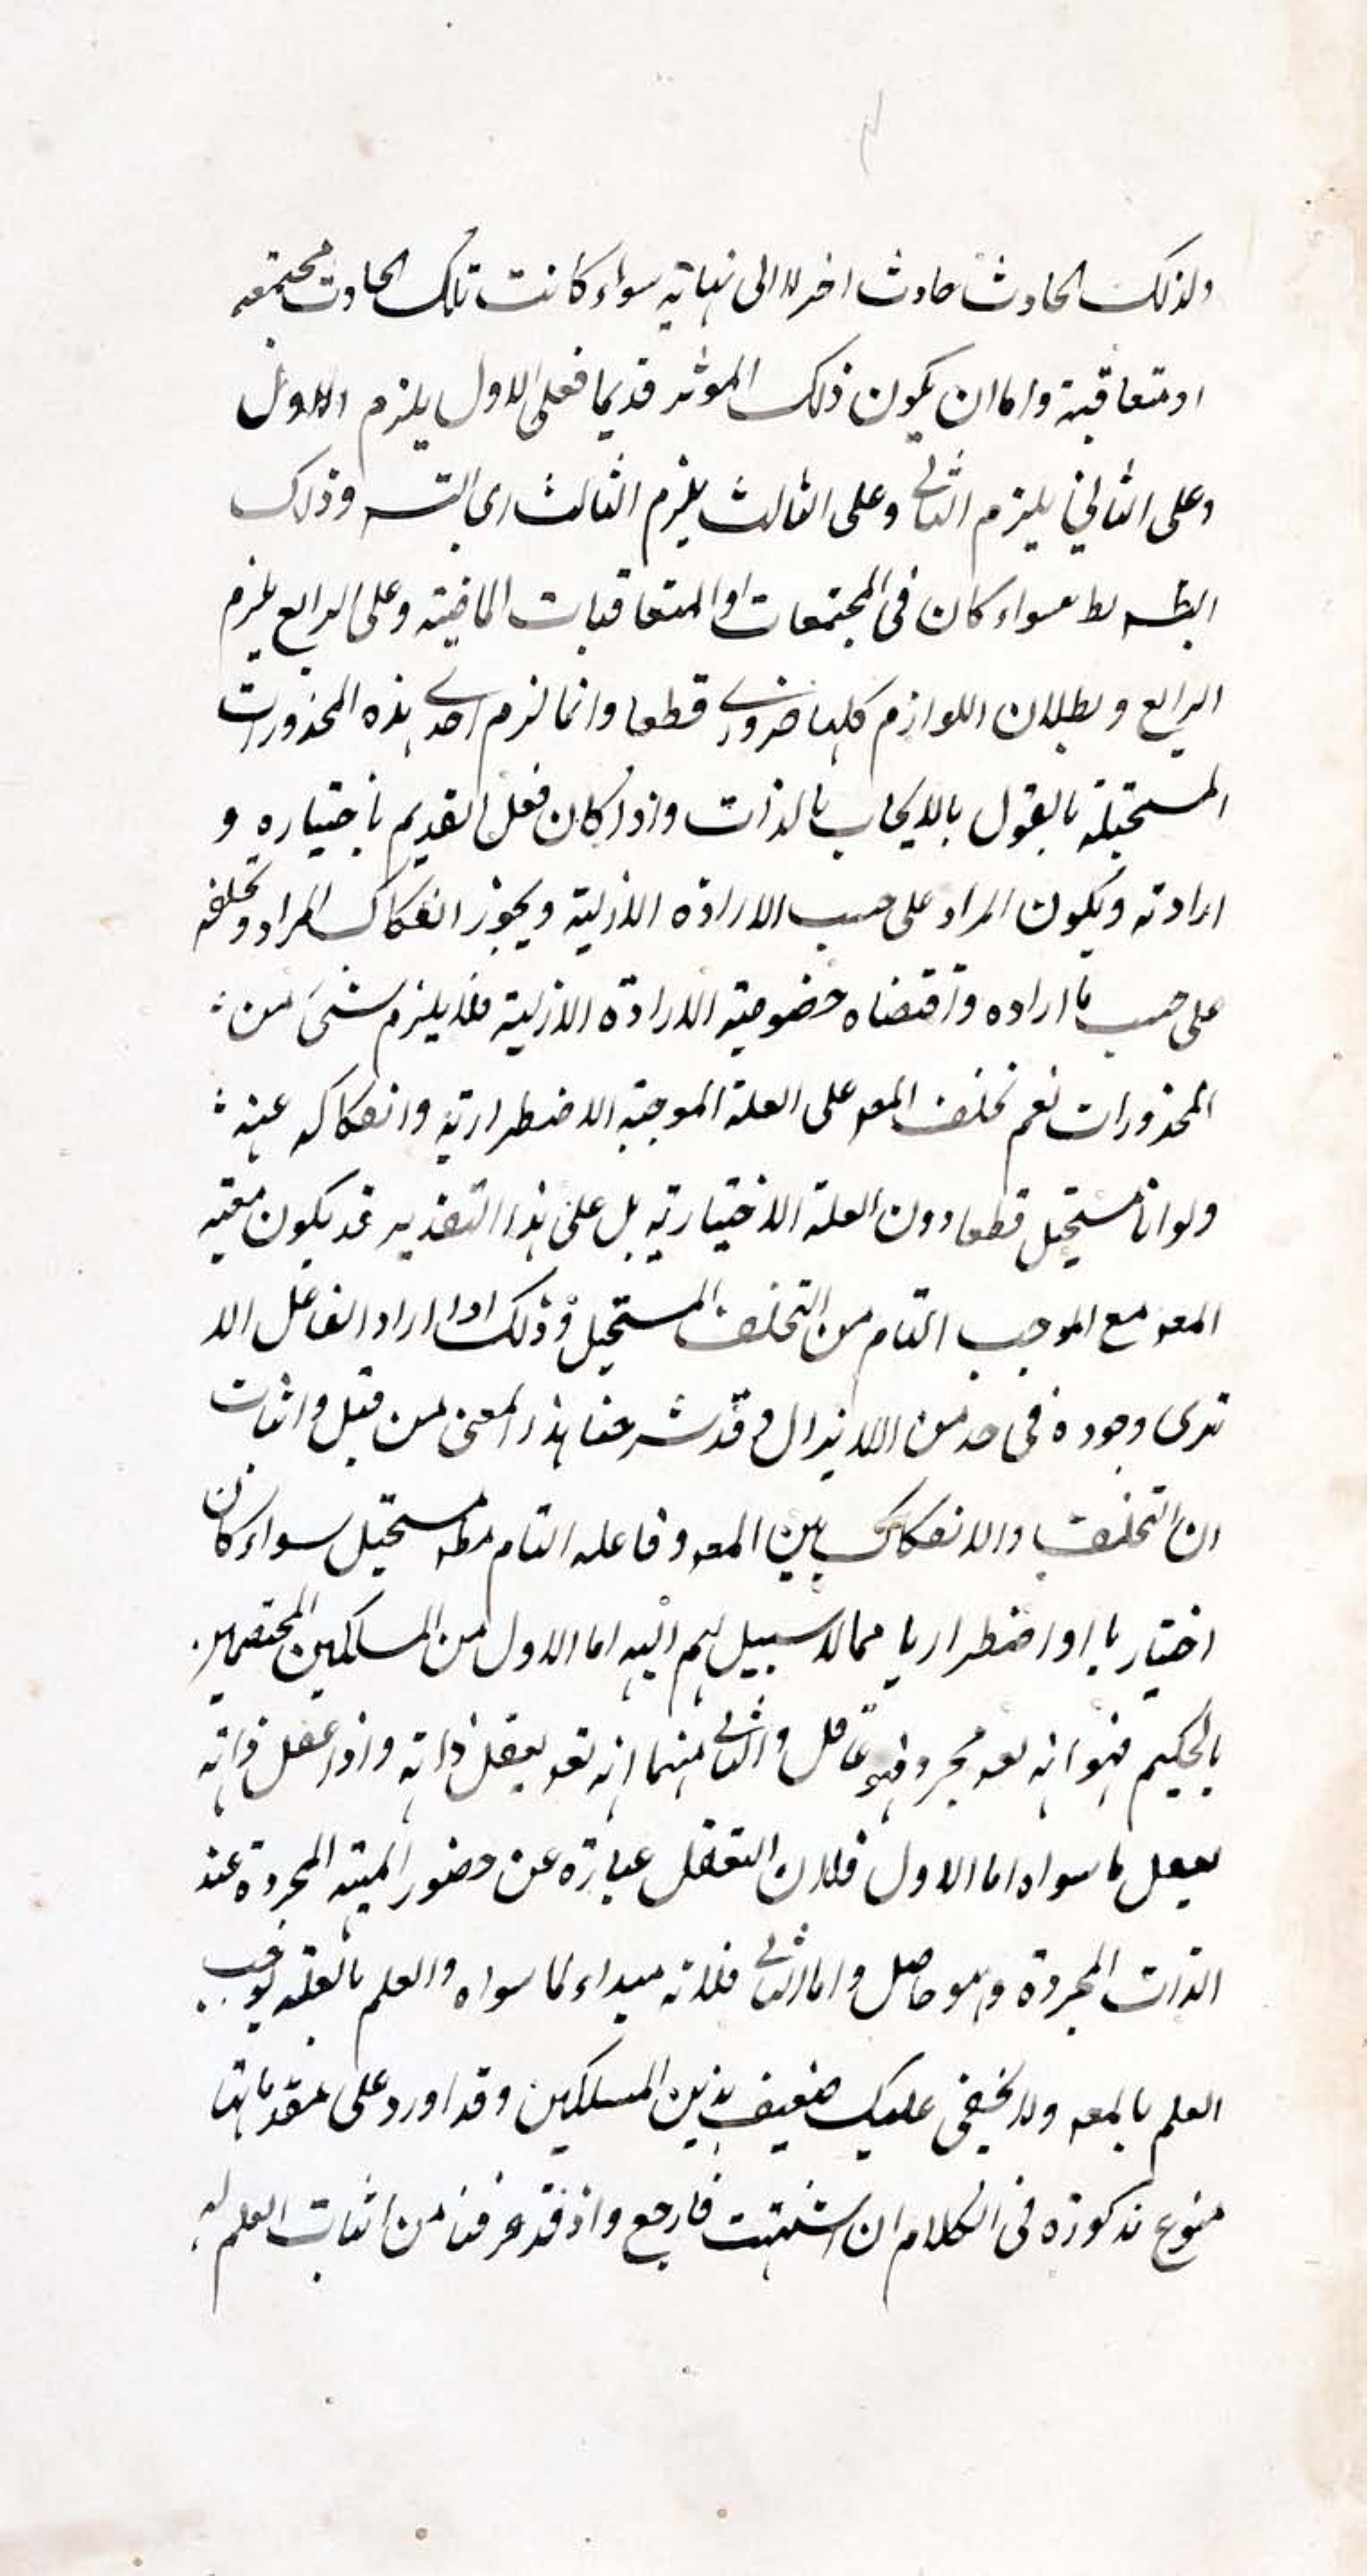 ولذلك الحادث حادث اخر لا الى نهاية سواء كانت تلك الحادث مجتمعه
او متعاقبة واما ان يكون ذلك الموثر قديما فعلى الاول يلزم الاول
وعلى الثاني يلزم الثاني وعلى الثالث يلزم الثالث اى التسه وذلك
التسه بط سواء كان فى المجتمعات او المتعاقبات الماضية وعلى الرابع يلزم
الرابع وبطلان اللوازم كلها ضروري قطعا وانما لزم احدى هذه المحذورات
المستحيلة بالقول بالايجاب بالذات واذا كان فعل القديم باختياره و
ارادته ويكون المراد على حسب الارادة الازلية ويجوز انفكاك المراد وتخلفه
على حسب ما اراده واقتضاه خصوصية الارادة الازلية فلا يلزم شىء من
المحذورات نعم تخلف المعه على العلة الموجبة الاضطرارية وانفكاكه عنه
ولو انا مستحيل قطعا دون العلة الاختيارية بل على هذا التقدير قد يكون معية
المعه مع الموجب التام من التخلف المستحيل وذلك اذا اراد الفاعل الا
ترى وجوده فى حد من اللايزال وقد شرحنا هذا المعنى من قبل واثبات
ان التخلف والانفكاك بين المعه وفاعله التام مطه مستحيل سواء كان
اختياريا او اضطراريا مما لا سبيل لهم اليه اما الاول من المسلكين المختصين
بالحكيم فهو انه تعه مجرد فهو عاقل والثاني منهما انه تعه يعقل ذاته واذا عقل ذاته
يعقل ما سواه اما الاول فلان التعقل عبارة عن حضور المهية المجردة عند
الذات المجردة وهو حاصل واما الثاني فلانه مبداء لما سواه والعلم بالعلة يوجب
العلم بالمعه ولا يخفى عليك ضعيف هذين المسلكين وقد اورد على مقدماتها
منوع مذكورة فى الكلام ان اشتهيت فارجع واذ قد عرفنا من اثبات العلم له